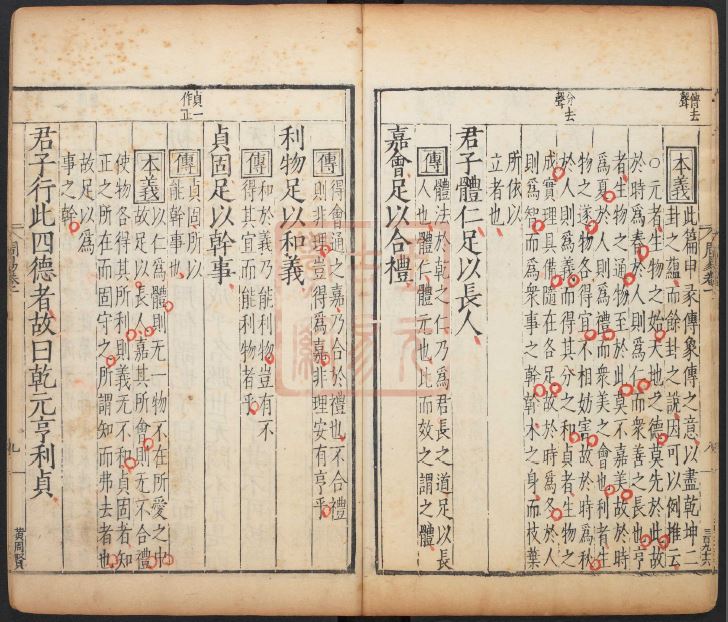 傳去聲
分去聲
本義 此篇申彖傳象傳之意以盡乾坤二
卦之蘊而餘卦之說因可以例推云
○元者生物之始天地之德莫先於此故
於時爲春於人則爲仁而衆善之長也亨
者生物之通物至於此莫不嘉美故於時
爲夏於人則爲禮而衆美之會也利者生
物之遂物各得宜不相妨害故於時爲秋
於人則爲義而得其分之和貞者生物之
成實理具備隨在各足故於時爲冬於人
則爲智而爲衆事之幹幹木之身而枝葉
所依以
立者也
君子體仁足以長人
傳 體法於乾之仁乃爲君長之道足以長
人也體仁體元也比而效之謂之體
嘉會足以合禮
貞一作正
傳 得會通之嘉乃合於禮也不合禮
則非理豈得爲嘉非理安有亨乎
利物足以和義
傳 和於義乃能利物豈有不
得其宜而能利物者乎
貞固足以幹事
傳 貞固所以
能幹事也
本義 以仁爲體則无一物不在所愛之中
故足以長人嘉其所會則无不合禮
使物各得其所利則義无不和貞固者知
正之所在而固守之所謂知而弗去者也
故足以爲
事之幹
君子行此四德者故曰乾元亨利貞
周易卷一
九
黃周賢
三百九十六